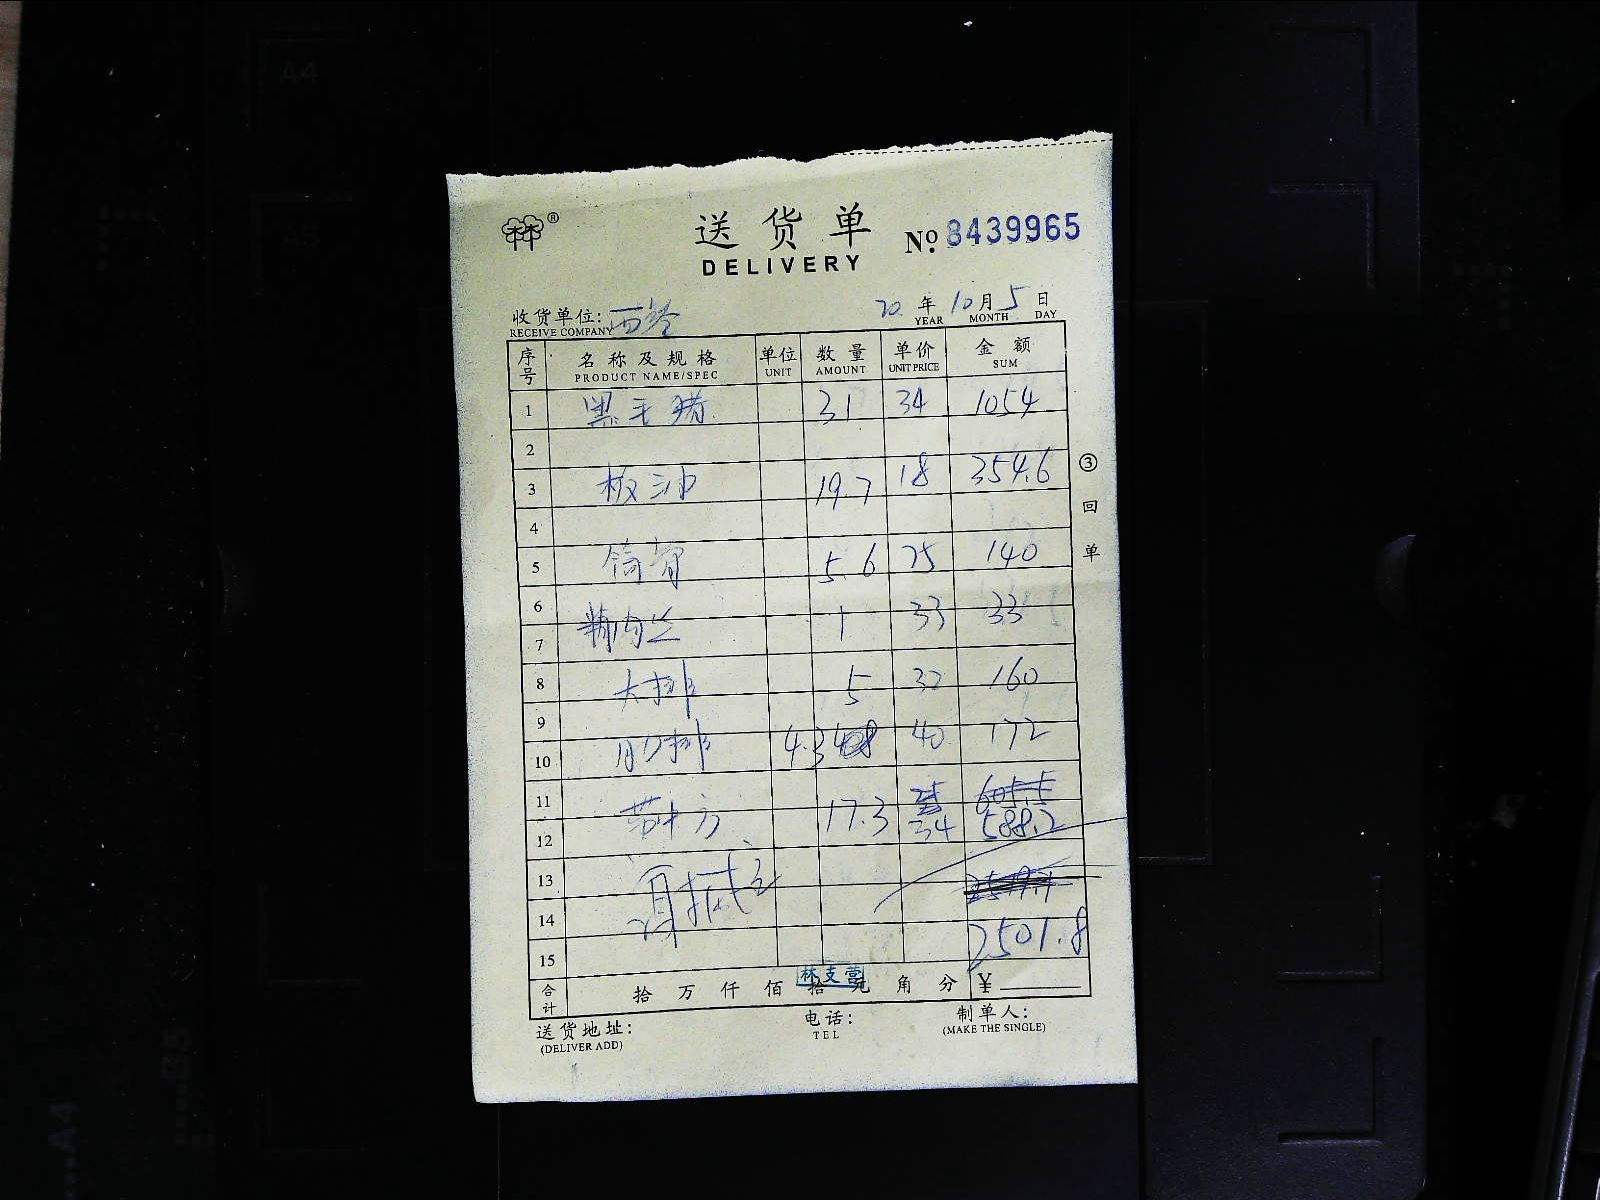 送货单 No. 8439965
DELIVERY
收货单位: 西餐 20 年 10 月 5 日
RECEIVE COMPANY YEAR MONTH DAY
序号 名称及规格 单位 数量 单价 金额
PRODUCT NAME/SPEC UNIT AMOUNT UNIT PRICE SUM
1 黑毛猪 31 34 1054
2
3 板油 19.7 18 354.6
4
5 筒骨 5.6 25 140
6
7 精肉丝 1 33 33
8 大排 5 32 160
9
10 肋排 4.3 40 172
11 605.5
12 带皮方 17.3 34 588.2
13
14
15 2501.8
合计 拾 万 仟 佰 拾 元 角 分 ¥
林支营
送货地址: 电话: 制单人:
(DELIVER ADD) TEL (MAKE THE SINGLE)
A4
A5
B5
A4
③回单